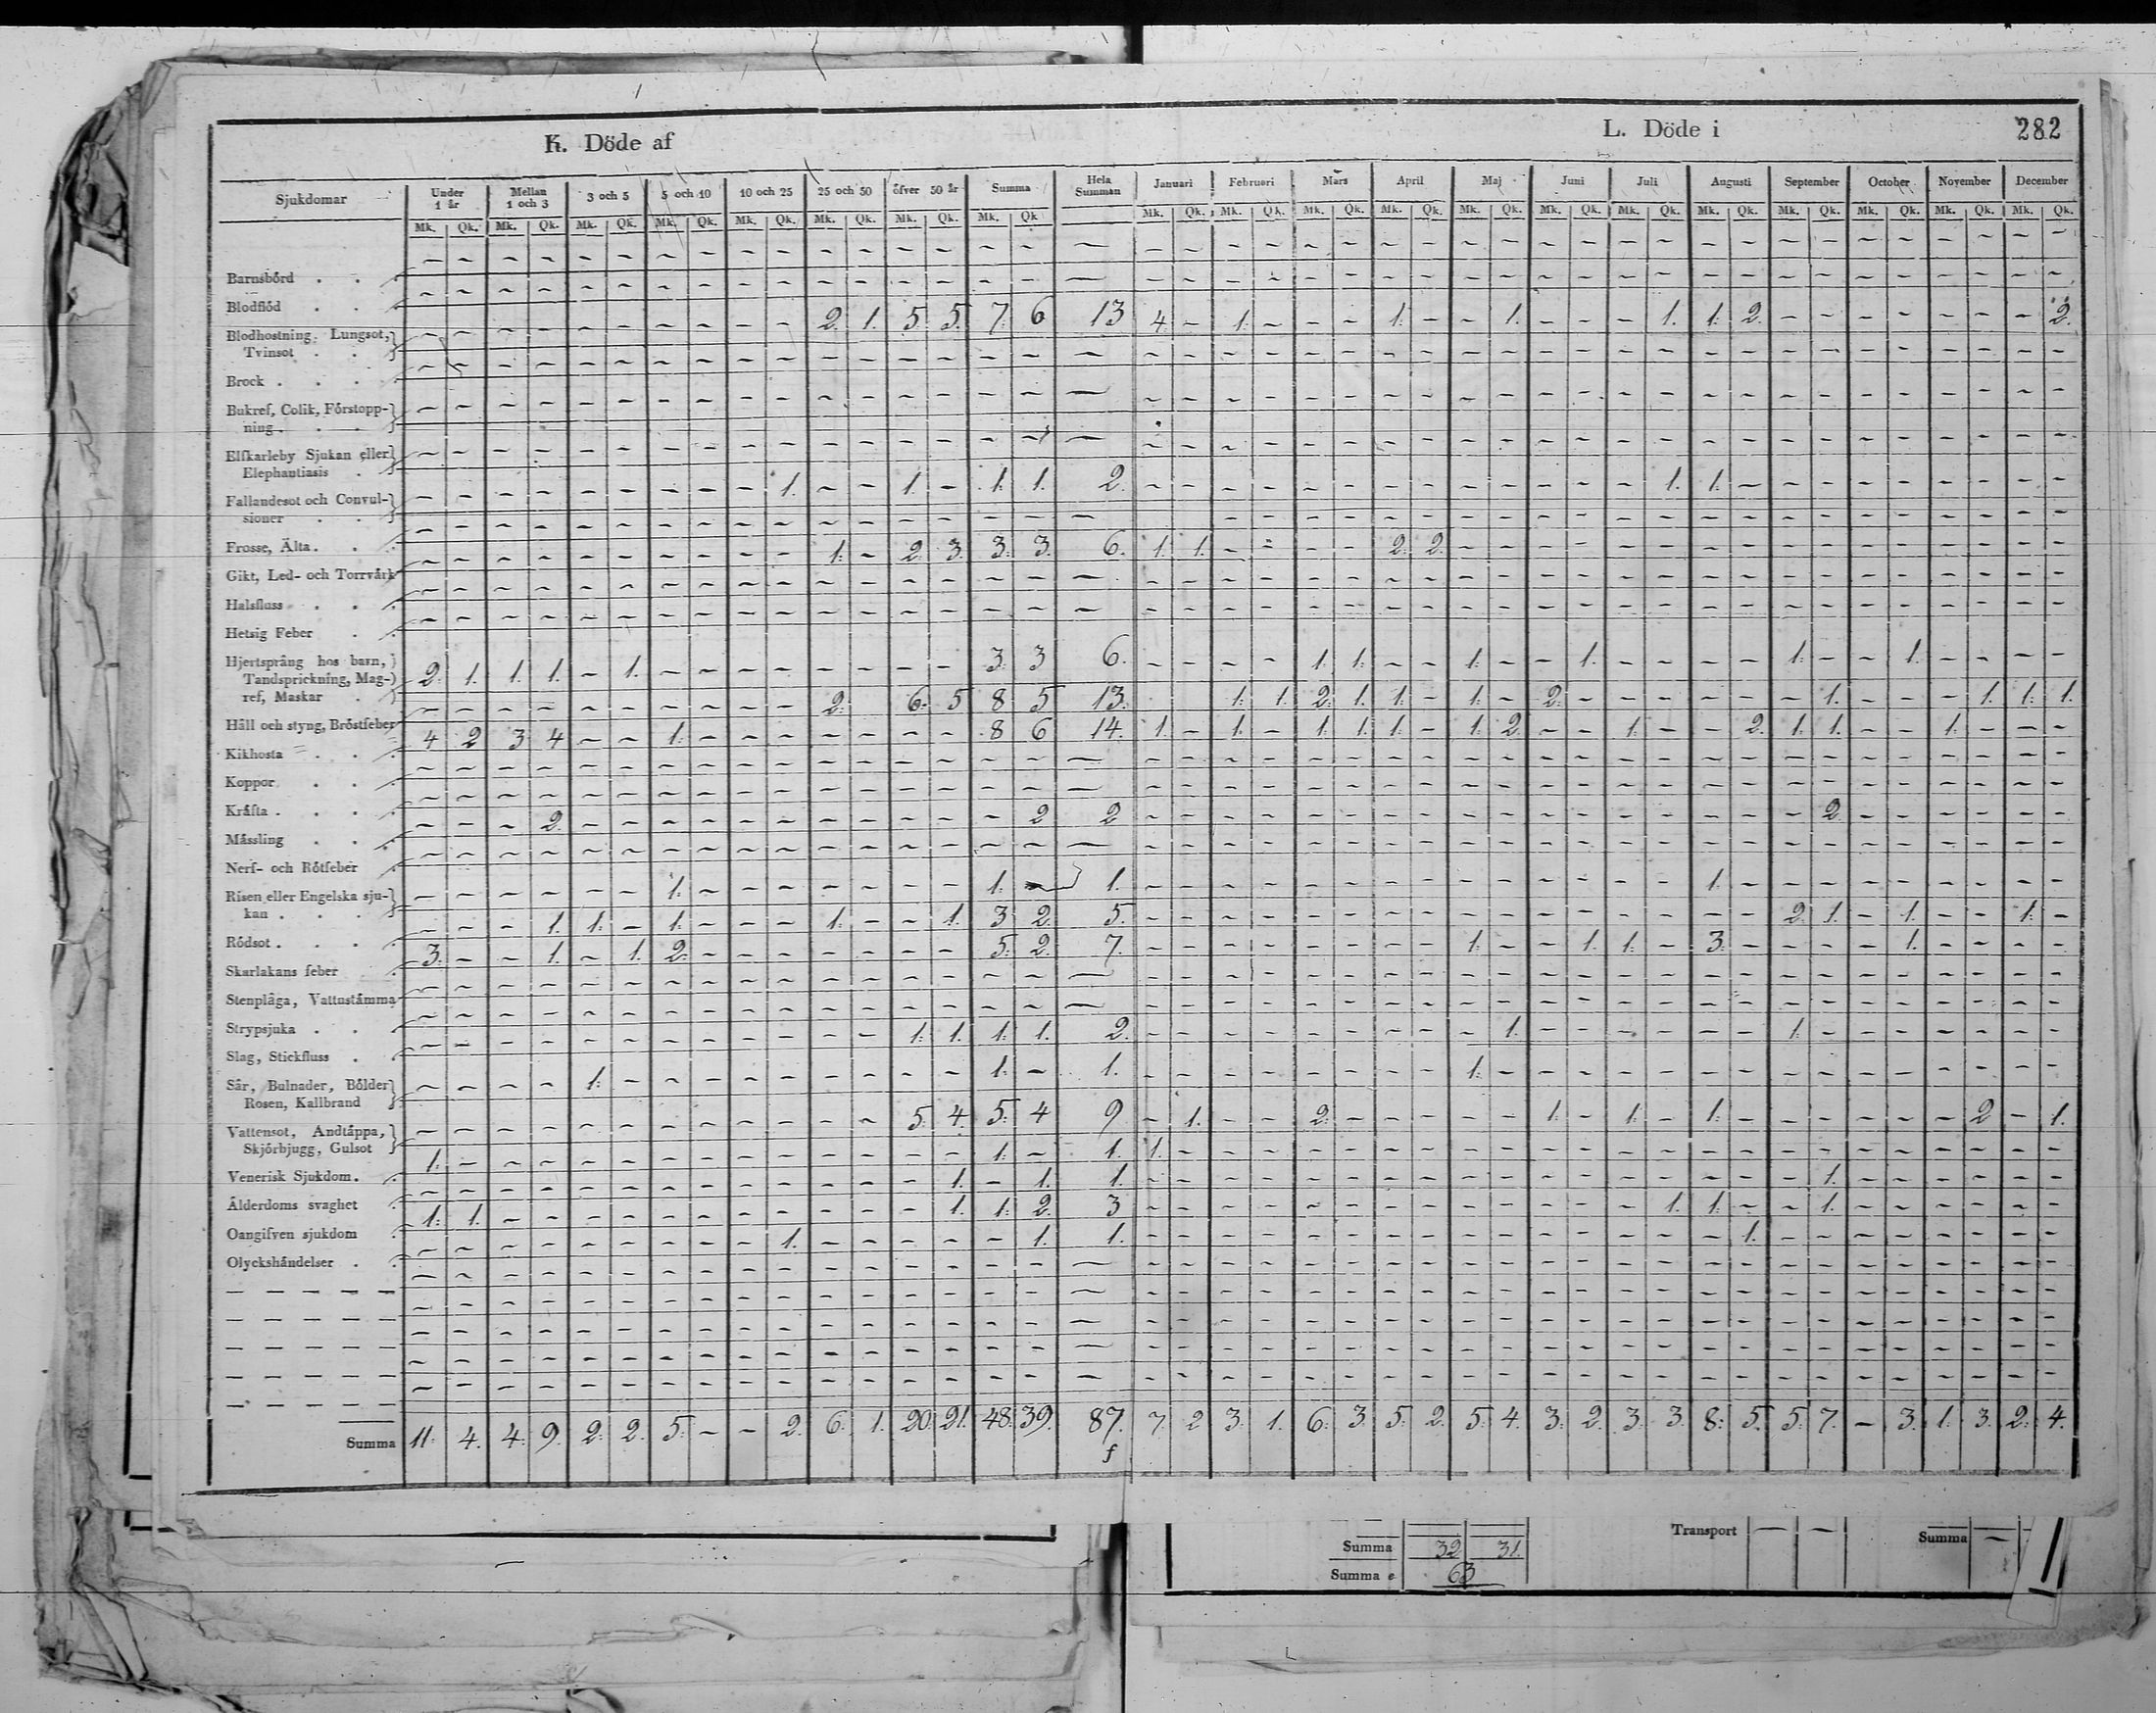 K. Döde af
L. Döde i
282
Sjukdomar Under 1 år Mellan 1 och 3 3 och 5 5 och 10 10 och 25 25 och 50 öfver 50 år Summa Hela Summan Januari Februari Mars April Maj Juni Juli Augusti September October November December
Mk. Qk. Mk. Qk. Mk. Qk. Mk. Qk. Mk. Qk. Mk. Qk. Mk. Qk. Mk. Qk Mk. Qk. Mk. Qk. Mk. Qk. Mk. Qk. Mk. Qk. Mk. Qk. Mk. Qk. Mk. Qk. Mk. Qk. Mk. Qk. Mk. Qk. Mk. Qk.
Barnsbörd . . .
Blodflöd . . .
Blodhostning, Lungsot,
Tvinsot . . 2. 1. 5. 5. 7. 6 13 4. 1. 1. 1. 1. 1. 2. 2.
Brock . . . .
Bukref, Colik, Förstopp-
ning . . .
Elfkarleby Sjukan eller
Elephantiasis .
Fallandesot och Convul-
sioner . . 1. 1. 1. 1. 2. 1. 1.
Frosse, Älta . . .
Gikt, Led- och Torrvärk 1. 2. 3. 3. 3. 6. 1. 1. 2. 2.
Halsfluss . . .
Hetsig Feber . .
Hjertsprång hos barn,
Tandsprickning, Mag-
ref, Maskar . 2. 1. 1. 1. 1. 3. 3 6. 1. 1. 1. 1. 1. 1.
Håll och styng, Bröstfeber 2. 6. 5 8 5 13. 1. 1. 2. 1. 1. 1. 2. 1. 1. 1. 1.
Kikhosta . . . 4 2 3 4 1. 8 6 14. 1. 1. 1. 1. 1. 1. 2. 1. 2. 1. 1. 1.
Koppor . . .
Kräfta . . . .
Mässling . . . 2. 2 2 2.
Nerf- och Rötfeber .
Risen eller Engelska sju-
kan . . . . 1. 1. 1. 1.
Rödsot . . . . 1. 1. 1. 1. 1. 3 2. 5. 2. 1. 1. 1.
Skarlakans feber . 3. 1. 1. 2. 5. 2. 7. 1. 1. 1. 3. 1.
Stenplåga, Vattustämma
Strypsjuka . . .
Slag, Stickfluss . . 1. 1. 1. 1. 2. 1. 1.
Sår, Bulnader, Bölder
Rosen, Kallbrand 1. 1. 1. 1.
Vattensot, Andtäppa,
Skjörbjugg, Gulsot 5. 4. 5. 4 9 1. 2. 1. 1. 1. 2 1.
Venerisk Sjukdom . . 1. 1. 1. 1.
Ålderdoms svaghet . 1. 1. 1. 1.
Oangifven sjukdom . 1. 1. 1. 1. 2. 3 1. 1. 1.
Olyckshändelser . . 1. 1. 1. 1.
Summa 11. 4. 4. 9. 2. 2. 5. - - 2. 6. 1. 20. 21. 48. 39. 87. 7. 2 3. 1. 6. 3. 5. 2. 5. 4. 3. 2. 3. 3. 8. 5. 5. 7. - 3. 1. 3. 2. 4.
f
Summa 32 31.
Summa e 63
Transport — —
Summa —